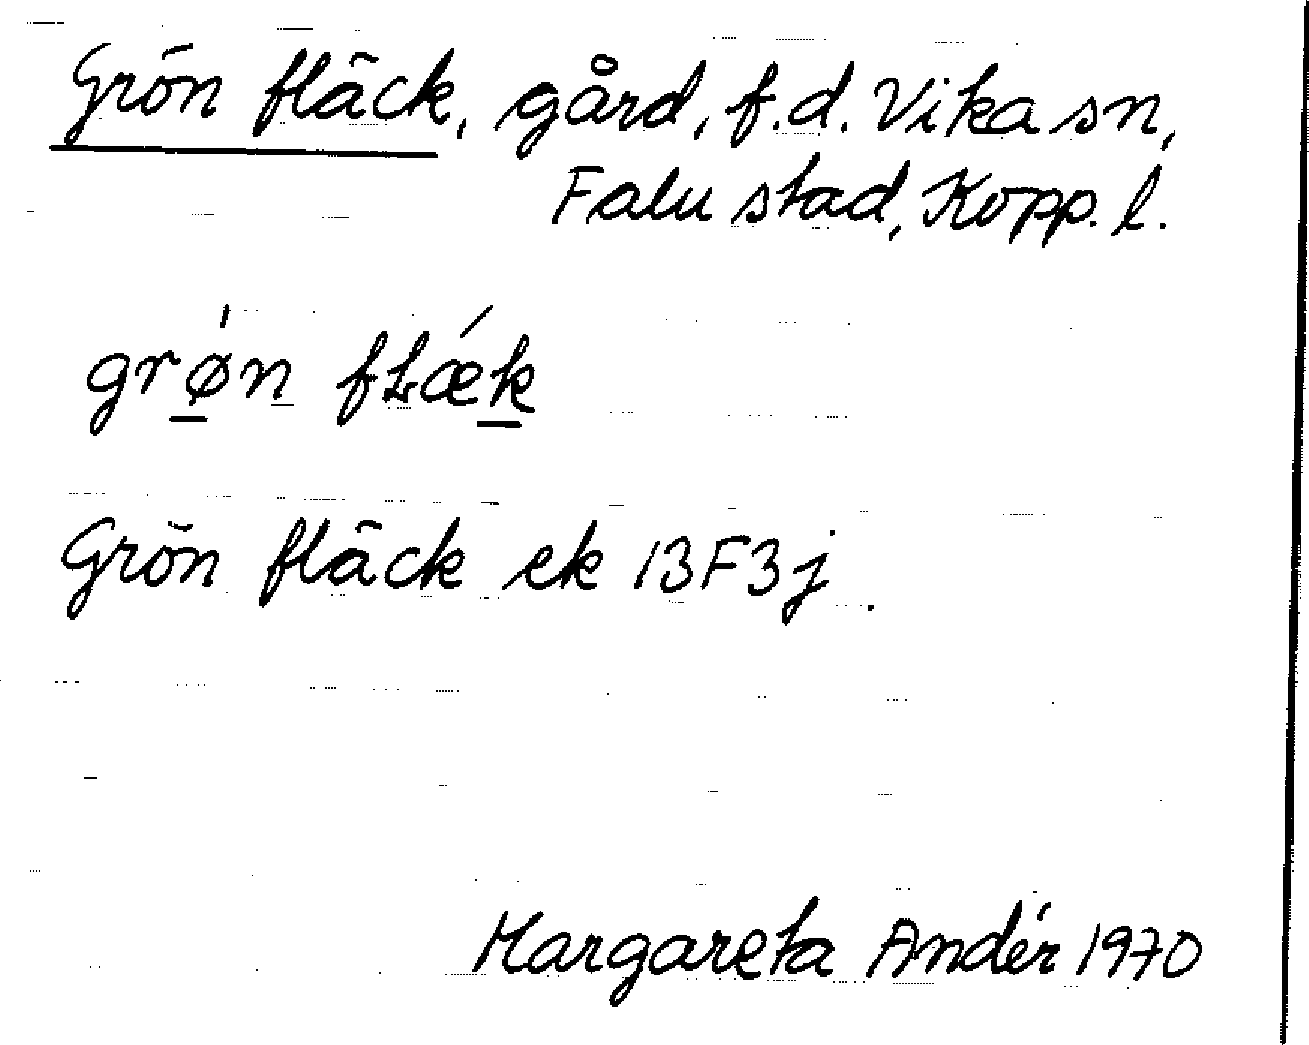 Grön fläck, gård, f.d. Vika sn,
Falu stad, Kopp. l.
grǿ̠n fɫǽk̠
Grön fläck ek 13F3j.
Margareta Andér 1970